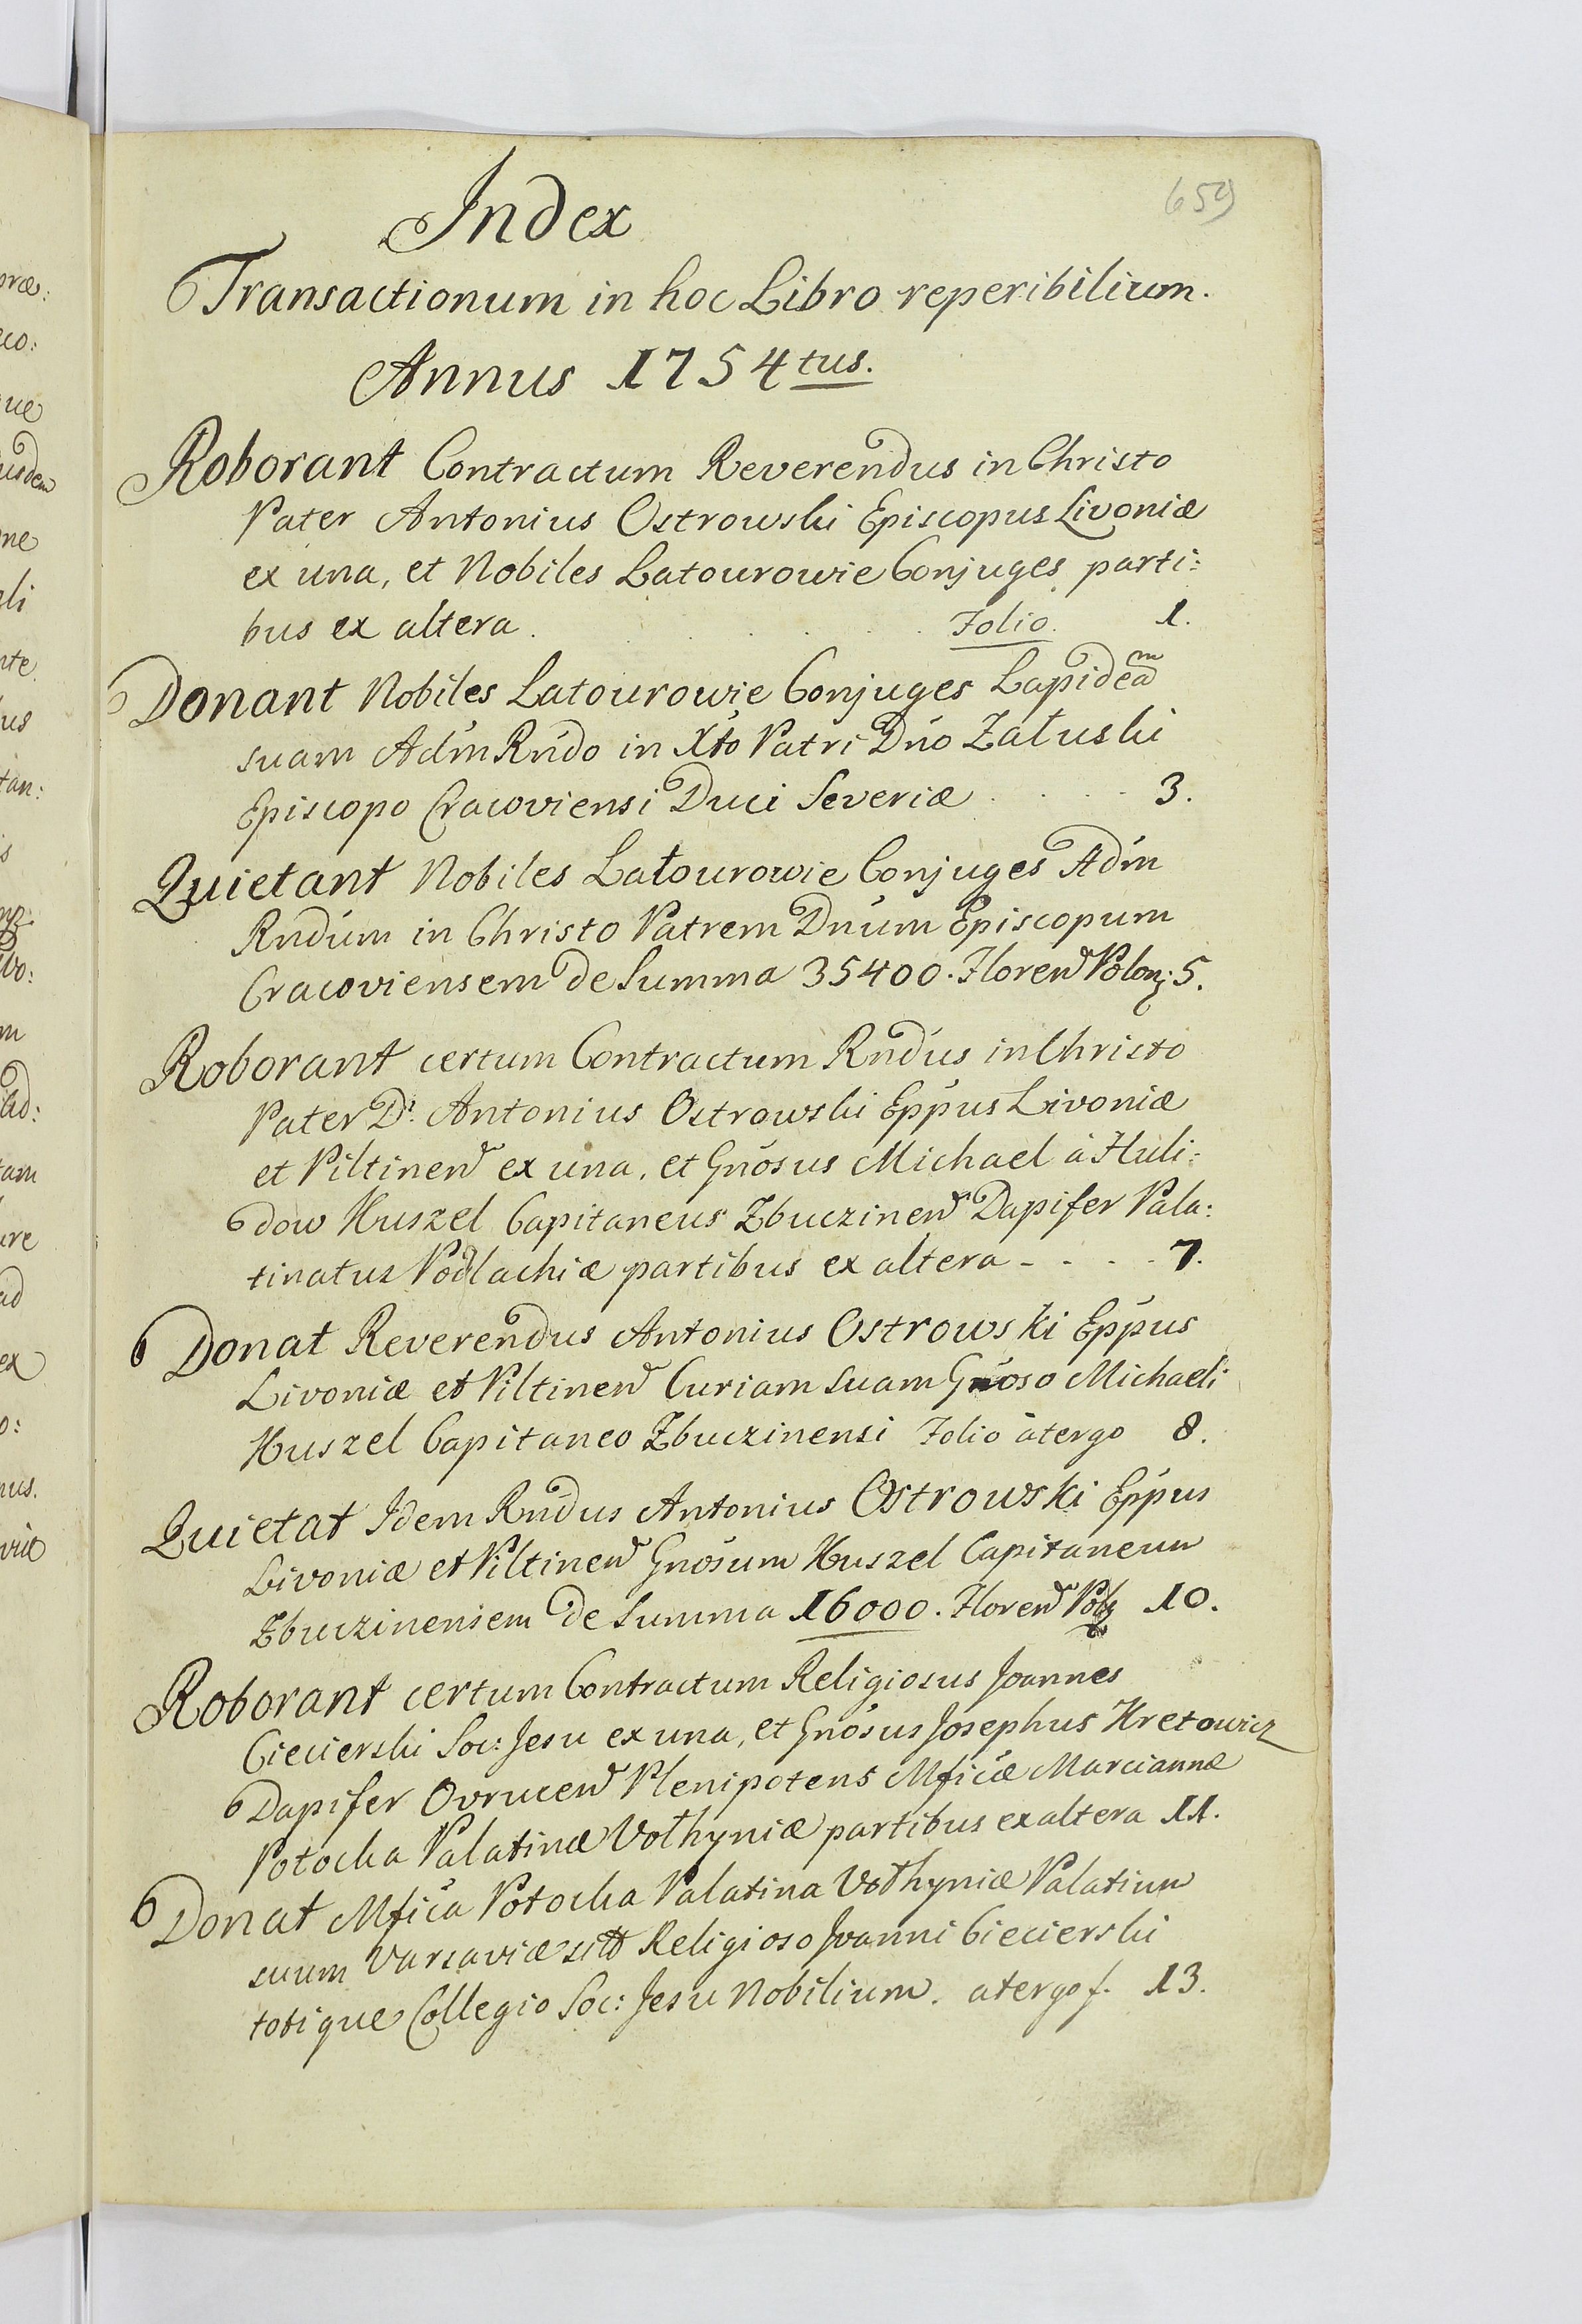 659
Index
Transactionum in hoc Libro reperibilium.
Annus 1754tus.
Roborant Contractum Reverendus in Christo
Pater Antonius Ostrowski Episcopus Livoniæ
ex una, et Nobiles Latourowie Conjuges parti:
bus ex altera . . . . . Folio. 1.
Donant Nobiles Latourowie Conjuges Lapideam
suam Adm Rndo in Xto Patri Dno Załuski
Episcopo Cracoviensi Duci Severiæ . . . . 3.
Quietant Nobiles Latourowie Conjuges Adm
Rndum in Christo Patrem Dnum Episcopum
Cracoviensem de Summa 35400. Floren Polon; 5.
Roborant certum Contractum Rndus in Christo
Pater D. Antonius Ostrowski Eppus Livoniæ
et Piltinen ex una, et Gnosus Michael à Huli:
dow Huszel Capitaneus Zbuczinen Dapifer Pala:
tinatus Podlachiæ partibus ex altera - . . . 7.
Donat Reverendus Antonius Ostrowski Eppus
Livoniæ et Piltinen Curiam suam Gnoso Michaeli
Huszel Capitaneo Zbuczinensi Folio àtergo 8.
Quietat Idem Rndus Antonius Ostrowski Eppus
Livoniæ et Piltinen Gnosum Huszel Capitaneum
Zbuczinensem de Summa 16000. Floren Pol 10.
Roborant certum Contractum Religiosus Joannes
Ciecierski Soc: Jesu ex una, et Gnosus Josephus Kretowicz
Dapifer Ovrucen Plenipotens Mficæ Marciannæ
Potocka Palatinæ Vołhyniæ partibus ex altera 11.
Donat Mfica Potocka Palatina Vołhyniæ Palatium
suum Varsaviæ Religioso Joanni Ciecierski
totique Collegio Soc: Jesu Nobilium. atergo f. 13.